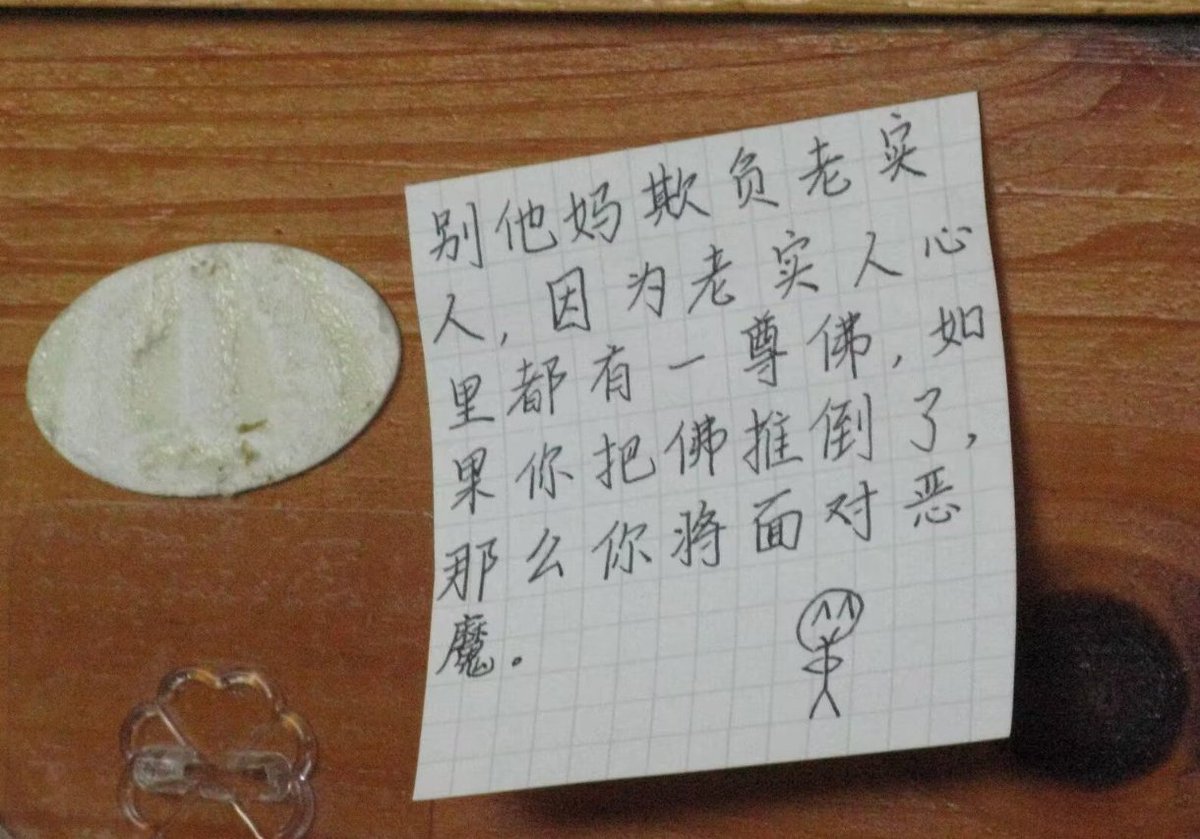 别他妈欺负老实
人,因为老实人心
里都有一尊佛,如
果你把佛推倒了,
那么你将面对恶
魔。